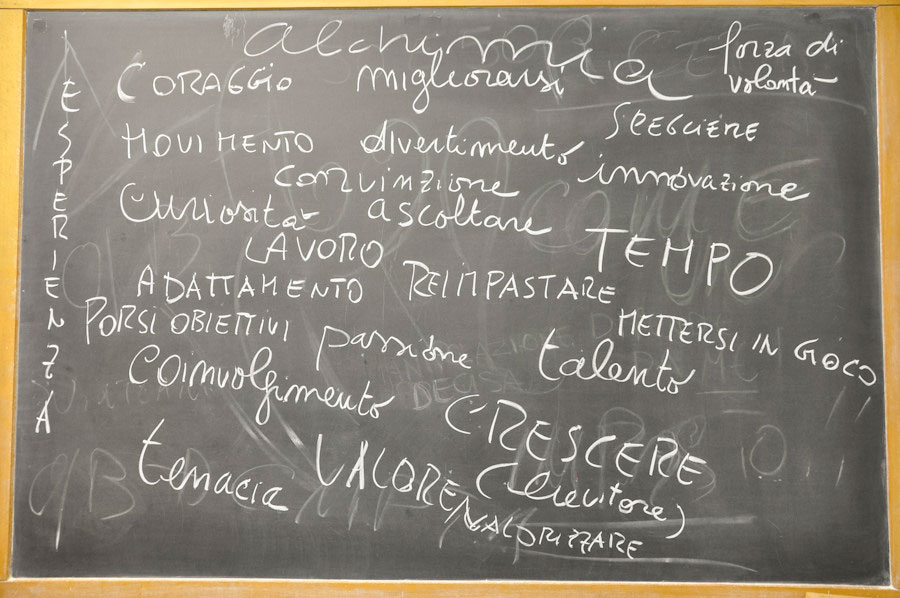 alchimia
forza di
volontà
CORAGGIO migliorarsi
ESPERIENZA
SCEGLIERE
MOVIMENTO divertimento
convinzione innovazione
Curiosità ascoltare
LAVORO TEMPO
ADATTAMENTO REIMPASTARE
PORSI OBIETTIVI METTERSI IN GIOCO
passione talento
coinvolgimento
CRESCERE
tenacia VALORE
VALORIZZARE